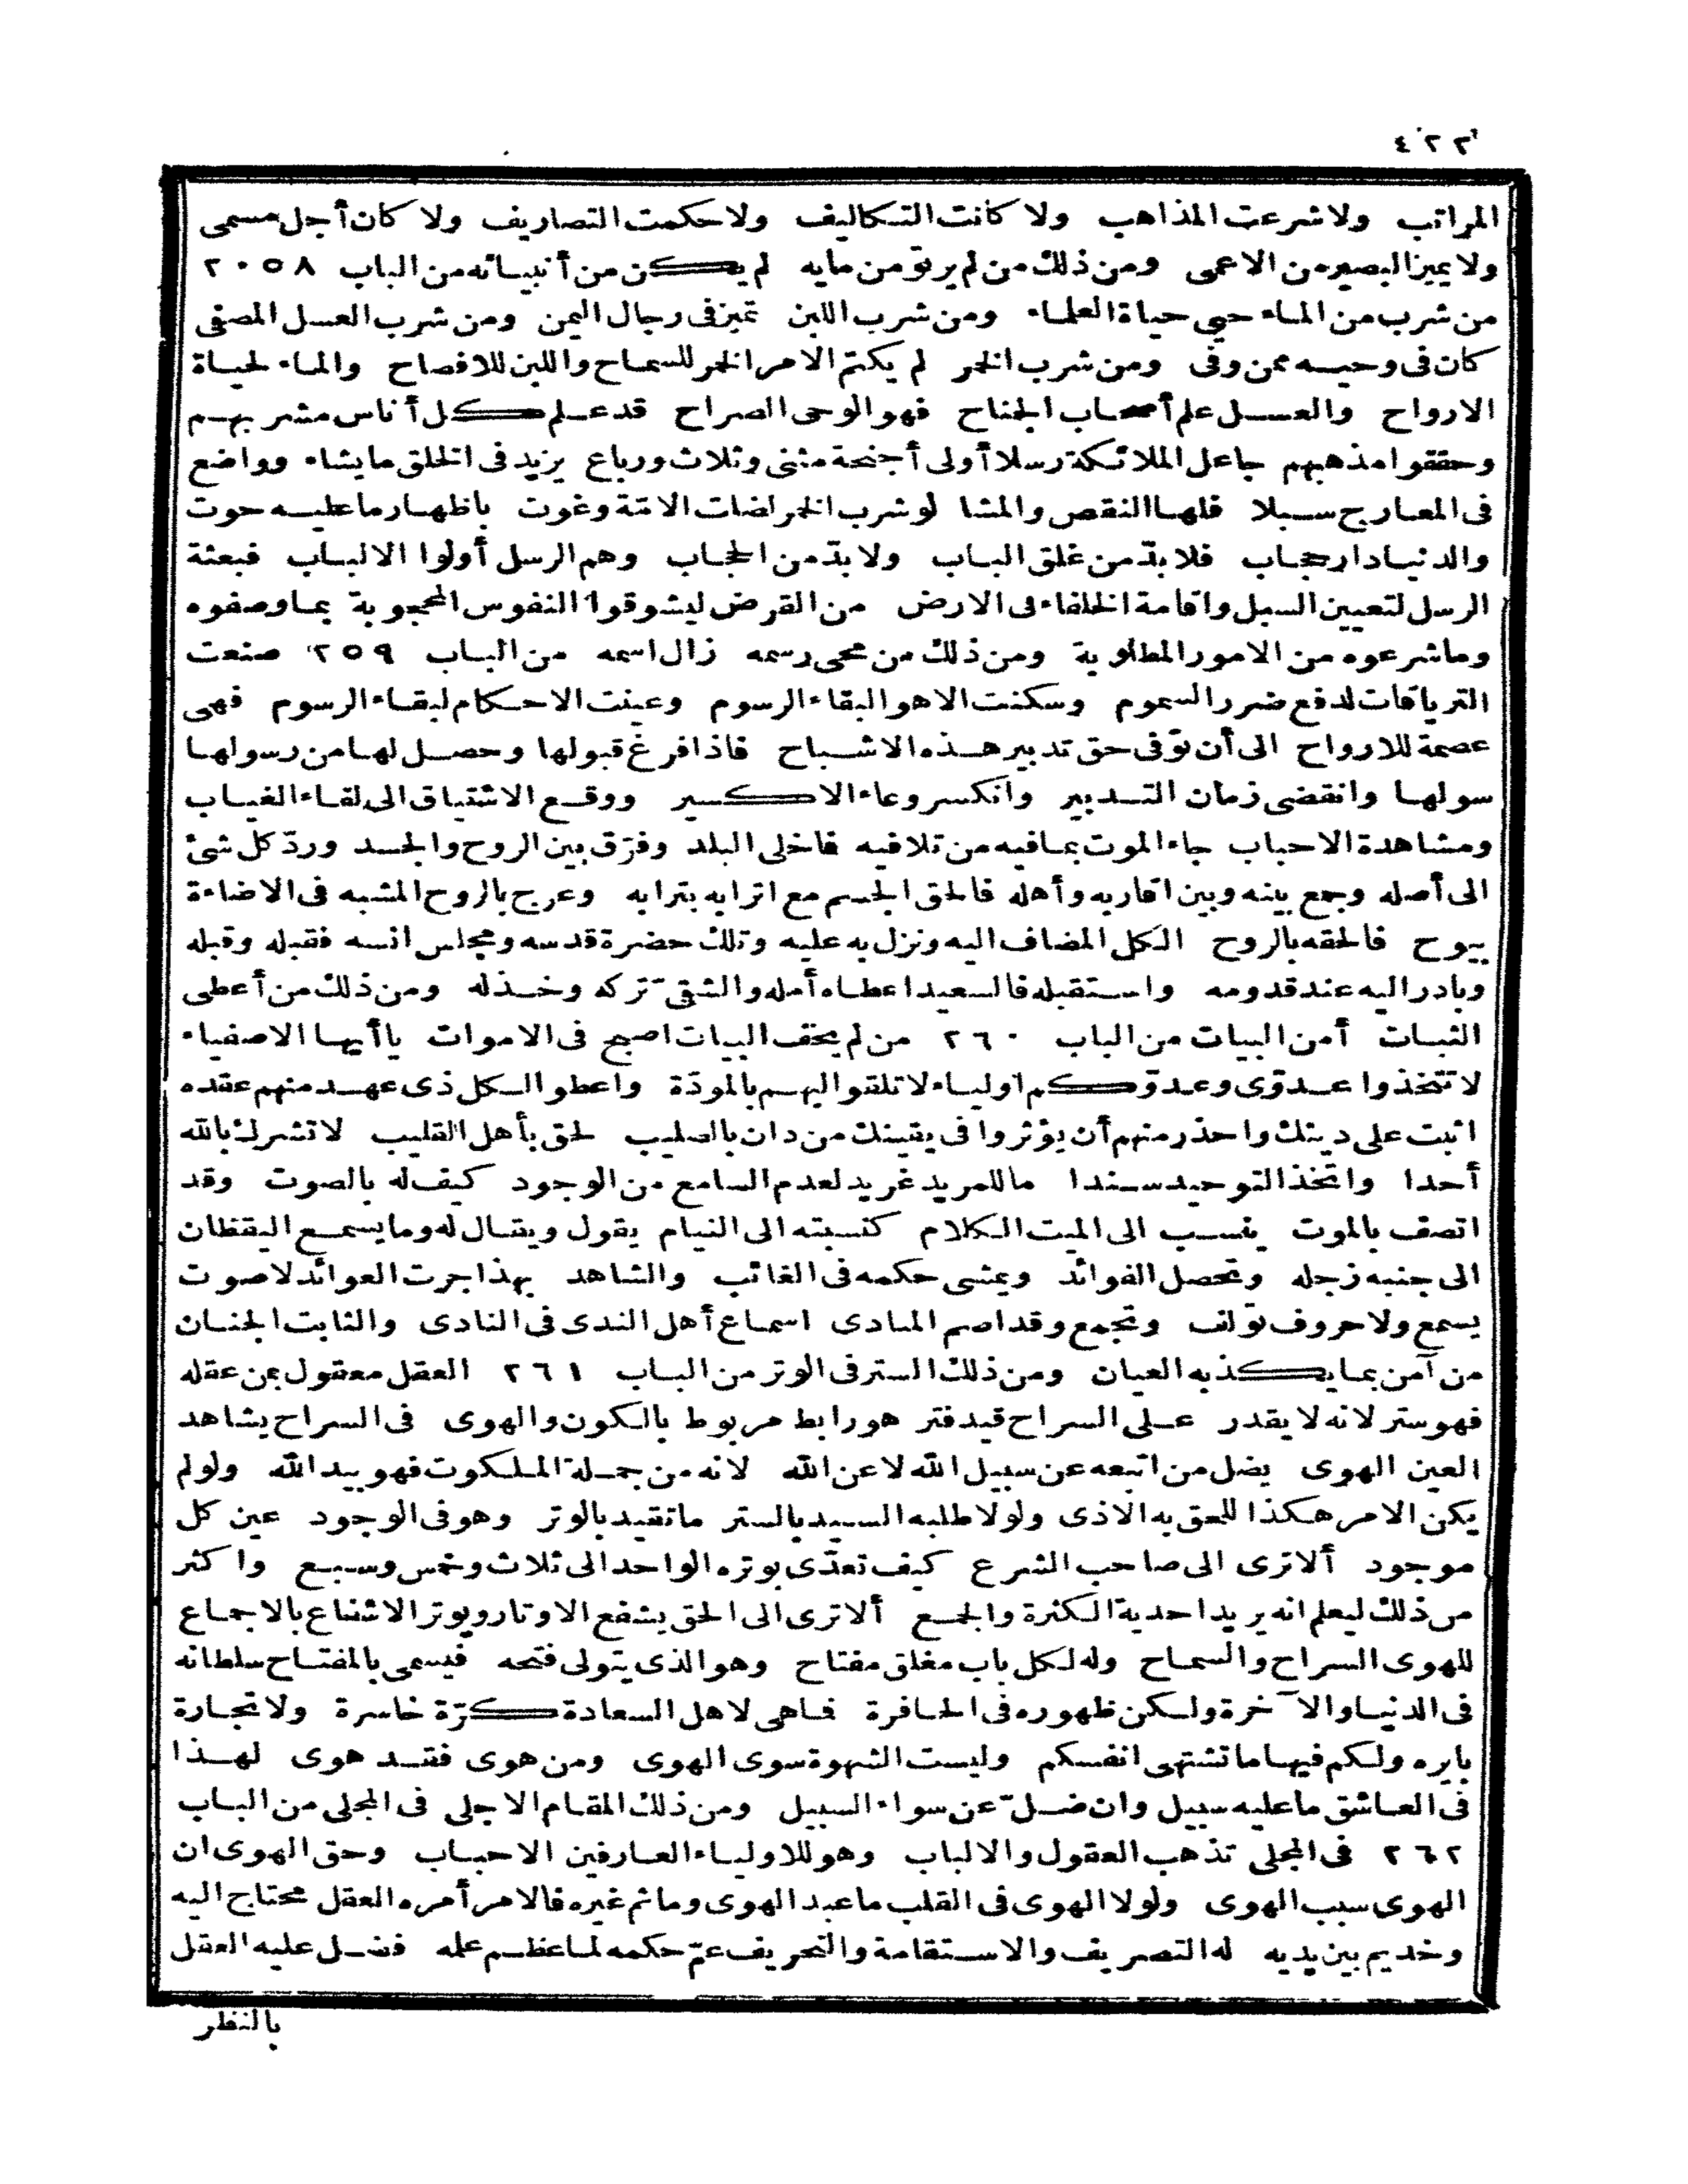 ٤٢٢
المراتب ولا شرعت المذاهب ولا كانت التكاليف ولا حكمت التصاريف ولا كان أجل مسمى
ولا يميز البصير من الاعمى ومن ذلك من لم يرتو من مايه لم يكن من أنبيائه من الباب ٢٠٥٨
من شرب من الماء حيى حياة العلماء ومن شرب اللبن تميز فى رجال اليمن ومن شرب العسل المصفى
كان فى وحيه ممن وفى ومن شرب الخمر لم يكتم الامر الخمر للسماح واللبن للافصاح والماء لحياة
الارواح والعسل علم أصحاب الجناح فهو الوحى الصراح قد علم كل أناس مشربهم
وحققوا مذهبهم جاعل الملائكة رسلا أولى أجنحة مثنى وثلاث ورباع يزيد فى الخلق ما يشاء وواضع
فى المعارج سبلا فلها النقص والمشا لو شرب الخمر لضلت الامّة وغوت باظهار ما عليه حوت
والدنيا دار حجاب فلا بدّ من غلق الباب ولا بدّ من الحجاب وهم الرسل أولوا الالباب فبعثة
الرسل لتعيين السبل واقامة الخلفاء فى الارض من القرض ليشوقوا النفوس المحجوبة بما وصفوه
وما شرعوه من الامور المطلوبة ومن ذلك من محى رسمه زال اسمه من الباب ٢٥٩ صنعت
الترياقات لدفع ضرر السموم وسكنت الاهوا لبقاء الرسوم وعينت الاحكام لبقاء الرسوم فهى
عصمة للارواح الى أن توّفى حق تدبير هذه الاشباح فاذا فرغ قبولها وحصل لها من رسولها
سولها وانقضى زمان التدبير وانكسر وعاء الاكسير ووقع الاشتياق الى لقاء الغياب
ومشاهدة الاحباب جاء الموت بما فيه من تلافيه فاخلى البلد وفرّق بين الروح والجسد وردّ كل شئ
الى أصله وجمع بينه وبين اقاربه وأهله فالحق الجسم مع اترابه بترابه وعرج بالروح المشبه فى الاضاءة
بيوح فالحقه بالروح الكل المضاف اليه ونزل به عليه وتلك حضرة قدسه ومجلس انسه فقبله وقبله
وبادر اليه عند قدومه واستقبله فالسعيد اعطاه أمله والشقىّ تركه وخذله ومن ذلك من أعطى
الثبات أمن البيات من الباب ٢٦٠ من لم يخف البيات اصبح فى الاموات يا أيها الاصفياء
لا تتخذوا عدوّى وعدوّكم اولياء لا تلقوا اليهم بالمودّة واعطوا لكل ذى عهد منهم عقده
اثبت على دينك واحذر منهم أن يؤثروا فى يقينك من دان بالصليب لحق بأهل القليب لا تشرك بالله
أحدا واتخذ التوحيد سندا ما للمريد غريد لعدم السامع من الوجود كيف له بالصوت وقد
اتصف بالموت ينسب الى الميت الكلام كنسبته الى النيام يقول ويقال له وما يسمع اليقظان
الى جنبه زجله وتحصل الفوائد ويمشى حكمه فى الغائب والشاهد بهذا جرت العوائد لا صوت
يسمع ولا حروف تؤلف وتجمع وقد اصم المنادى اسماع أهل الندى فى النادى والثابت الجنان
من آمن بما يكذبه العيان ومن ذلك الستر فى الوتر من الباب ٢٦١ العقل معقول بمن عقله
فهو ستر لانه لا يقدر على السراح قيد فتر هو رابط مربوط بالكون والهوى فى السراح يشاهد
العين الهوى يضل من اتبعه عن سبيل الله لا عن الله لانه من جملة الملكوت فهو بيد الله ولو لم
يكن الامر هكذا للحق به الاذى ولولا طلبه السيد بالستر ما تقيد بالوتر وهو فى الوجود عين كل
موجود ألا ترى الى صاحب الشرع كيف تعدّى بوتره الواحد الى ثلاث وخمس وسبع واكثر
من ذلك ليعلم انه يريد احدية الكثرة والجمع ألا ترى الى الحق يشفع الاوتار ويوتر الاشفاع بالاجماع
للهوى السراح والسماح وله لكل باب مغلق مفتاح وهو الذى يتولى فتحه فيسمى بالمفتاح سلطانه
فى الدنيا والآخرة ولكن ظهوره فى الحافرة فما هى لاهل السعادة كرّة خاسرة ولا تجارة
بايره ولكم فيها ما تشتهى انفسكم وليست الشهوة سوى الهوى ومن هوى فقد هوى لهذا
فى العاشق ما عليه سبيل وان ضلّ عن سواء السبيل ومن ذلك المقام الاجلى فى المجلى من الباب
٢٦٢ فى المجلى تذهب العقول والالباب وهو للاولياء العارفين الاحباب وحق الهوى ان
الهوى سبب الهوى ولولا الهوى فى القلب ما عبد الهوى وما ثم غيره فالامر أمره العقل محتاج اليه
وخديم بين يديه له التصريف والاستقامة والتحريف عمّ حكمه لما عظم علمه فضل عليه العقل
بالنظر